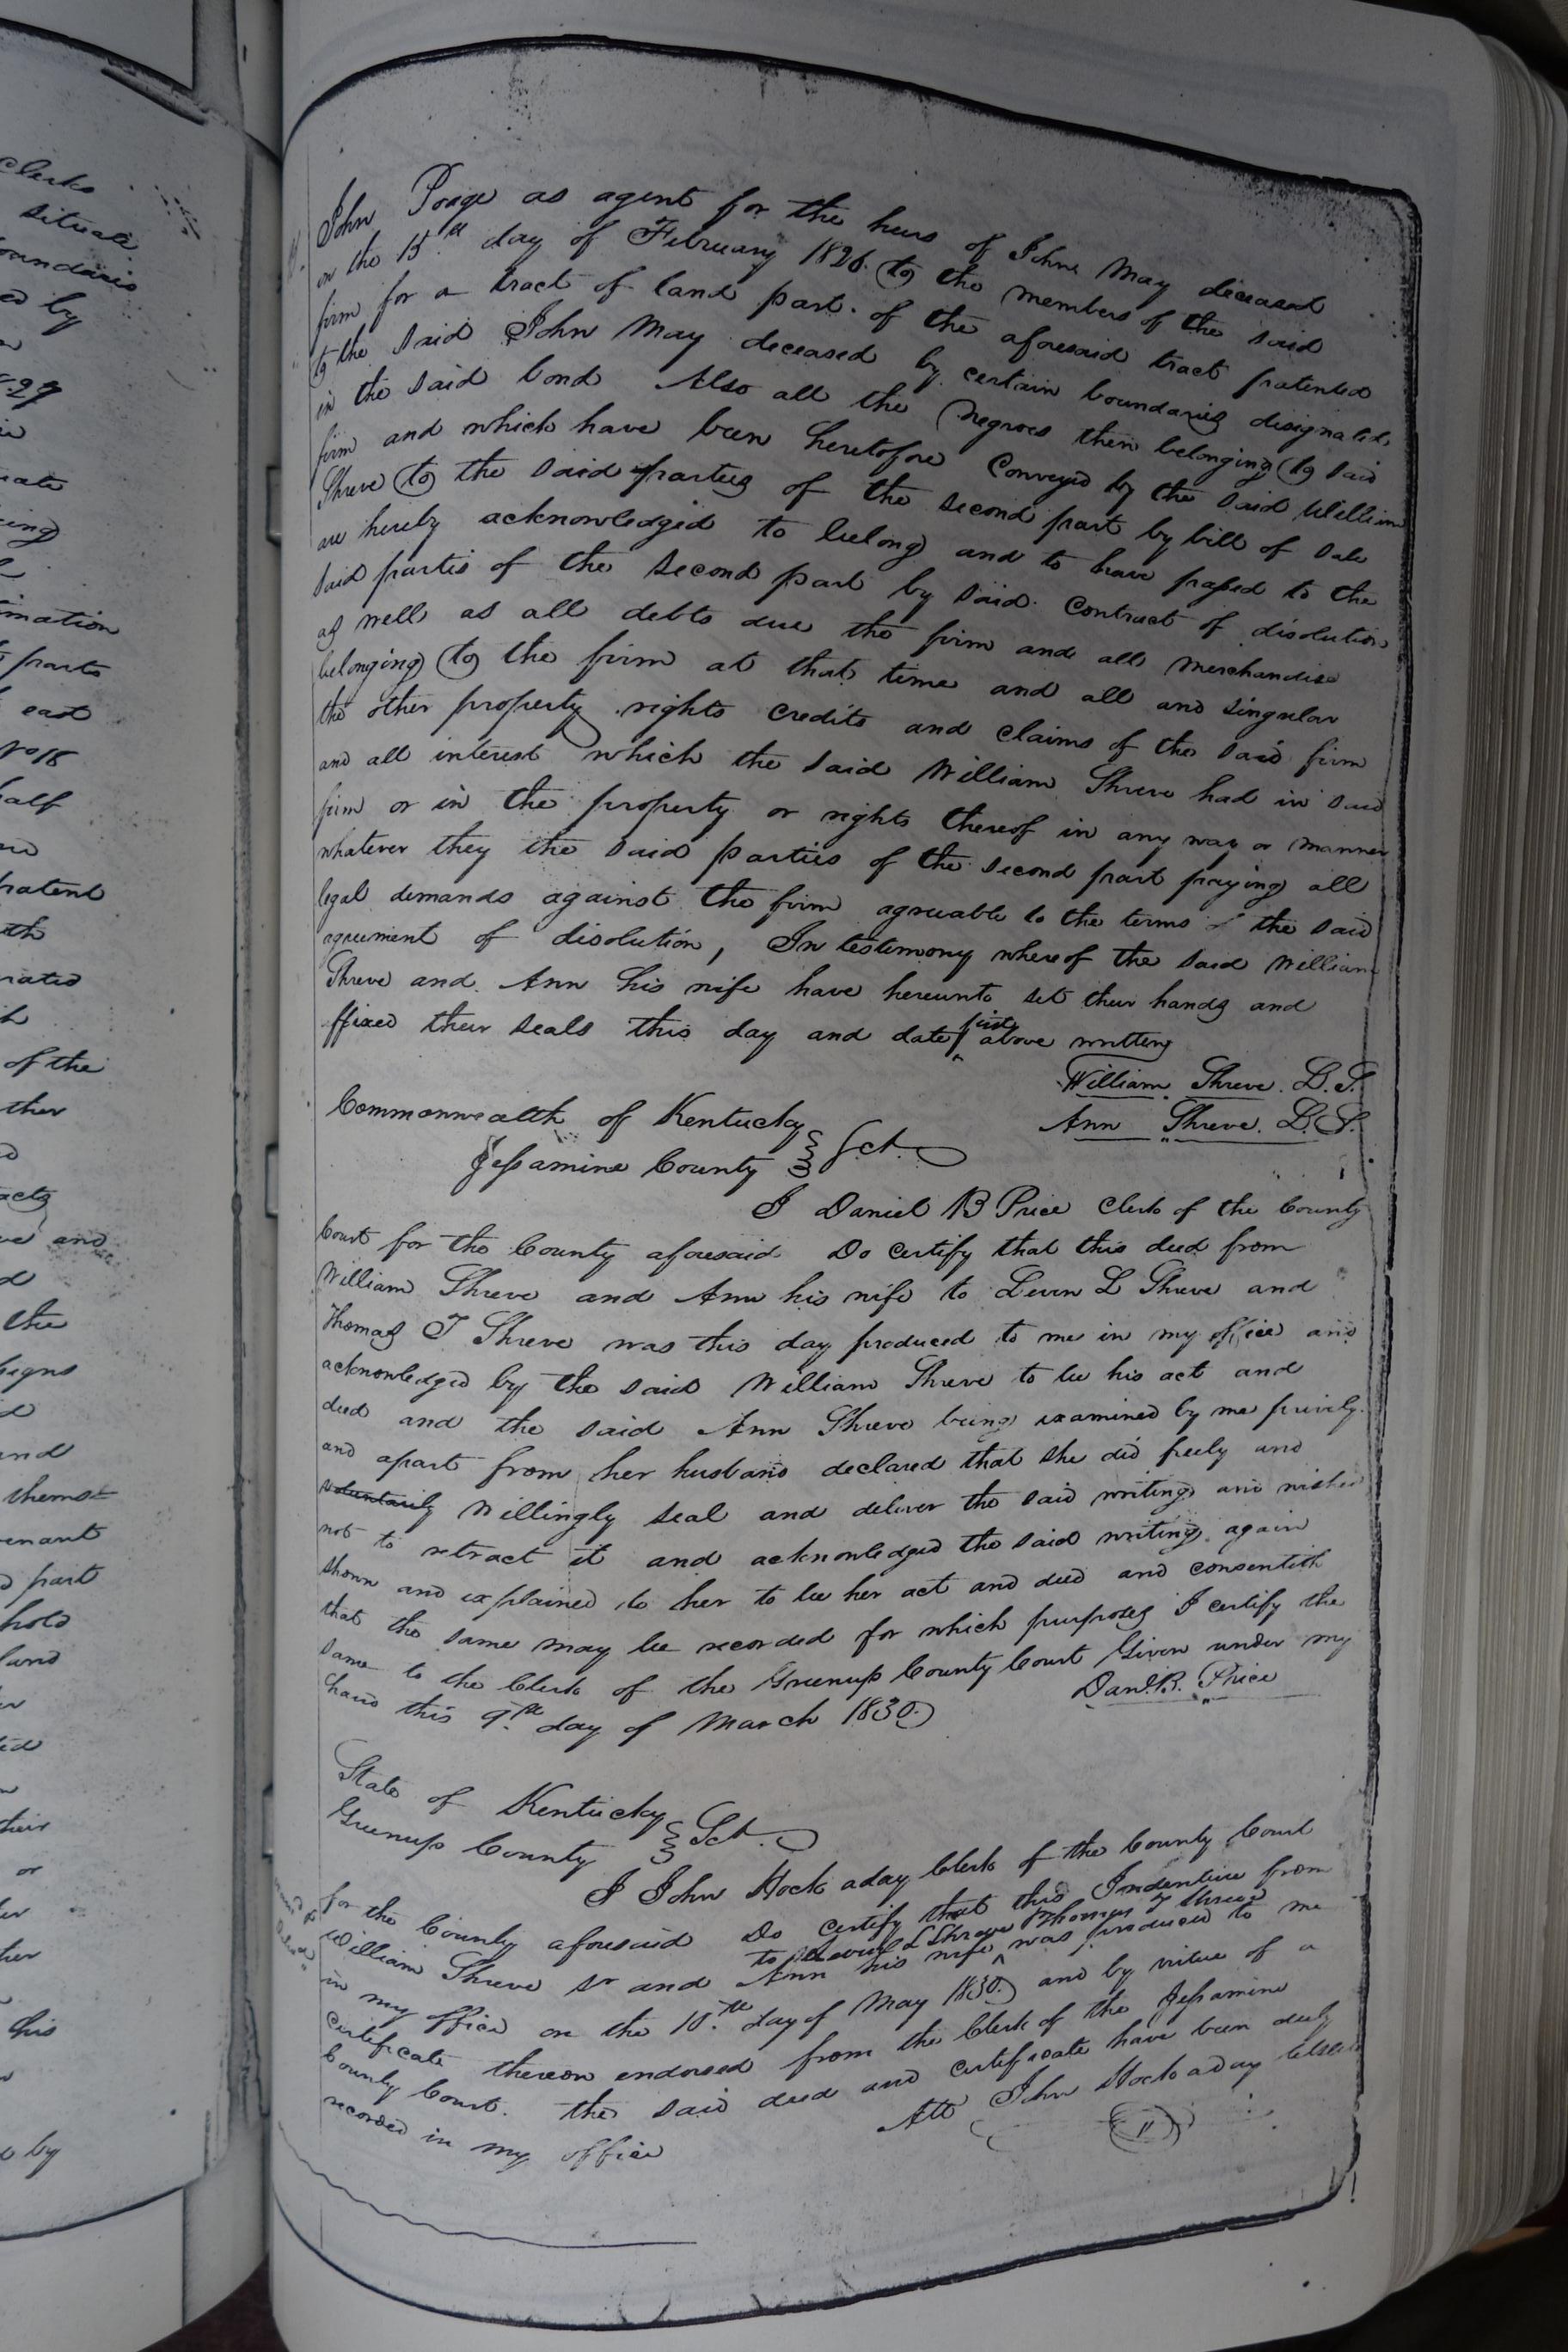 Clerks
situate
boundaries
ed by
1829
rate
ing
mation
parts
east
No 18
half
patent
th
rated
of the
ther
acts
and
the
signs
and
thems=
venant
part
hold
land
their
or
her
his
by
John Poage as agent for the heirs of John May deceased
on the 15th day of February 1826 to the members of the said
firm for a tract of land part of the aforesaid tract patented
to the said John May deceased by certain boundaries designated
in the said bond Also all the Negroes then belonging to said
firm and which have been heretofore Conveyed by the said William
Shreve to the said parties of the second part by bill of sale
are hereby acknowledged to belong and to have passed to the
said parties of the second part by said contract of disolution
as well as all debts due the firm and all merchandise
belonging to the firm at that time and all and singular
the other property rights credits and claims of the said firm
and all interest which the said William Shreve had in said
firm or in the property or rights thereof in any way or manner
whatever they the said parties of the second part paying all
legal demands against the firm agreeable to the terms of the said
agreement of disolution, In testimony whereof the said William
Shreve and Ann his wife have hereunto set their hands and
affixed their seals this day and date first above written
William Shreve. L.S.
Ann Shreve. L.S.
Commonwealth of Kentucky
Jessamine County } Sct.
I Daniel B Price Clerk of the County
Court for the County aforesaid Do certify that this deed from
William Shreve and Ann his wife to Leven L Shreve and
Thomas T Shreve was this day produced to me in my office and
acknowledged by the said William Shreve to be his act and
deed and the said Ann Shreve being examined by me privily
and apart from her husband declared that she did freely and
voluntarily Willingly seal and deliver the said writing and wishes
not to retract it and acknowledged the said writing again
shown and explained to her to be her act and deed and consenteth
that the same may be recorded for which purposes I certify the
same to the Clerk of the Greenup County Court Given under my
hand this 9th day of March 1830
Danl. B. Price
State of Kentucky
Greenup County } Sct.
I John Hockaday Clerk of the County Court
for the County aforesaid Do certify that this Indenture from
William Shreve sr and Ann his wife to Leven L Shreve Thomas T Shreve was produced to me
in my office on the 10th day of May 1830 and by virtue of a
certificate thereon endorsed from the Clerk of the Jessamine
County Court. the said deed and certificate have been duly
recorded in my office
Att John Hockaday Clerk